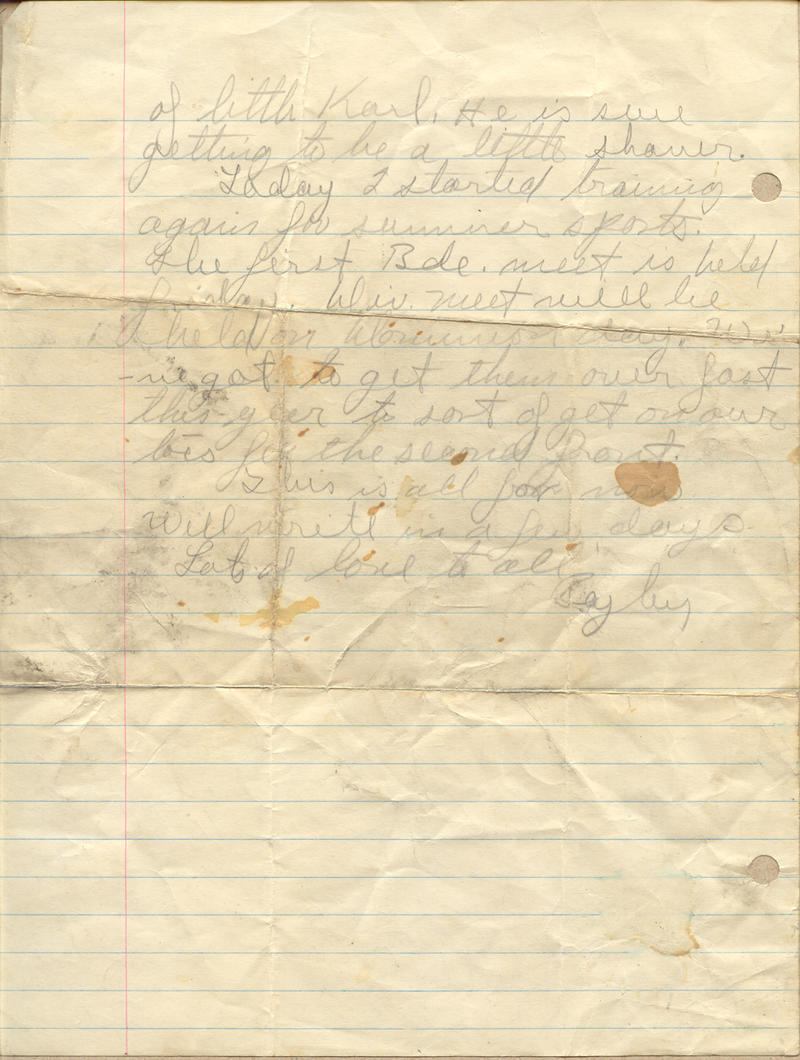 of little Karl. He is sure
getting to be a little shaver.
Today I started training
again for summer sports.
The first Bde. meet is held
friday. Div. meet will be
held on Dominion day. We'-
-ve got to get them over fast
this year to sort of get on our
toes for the second front.
This is all for now
Will write in a few days.
Lots of love to all